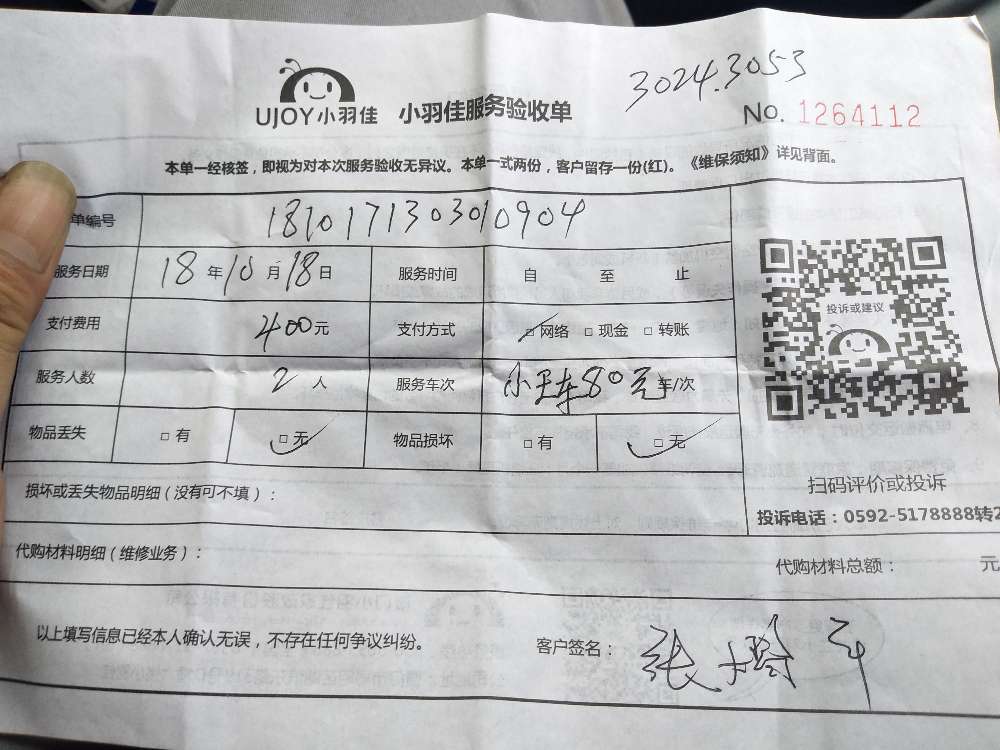 3024.3053
UJOY小羽佳 小羽佳服务验收单 No. 1264112
本单一经核签，即视为对本次服务验收无异议。本单一式两份，客户留存一份(红)。《维保须知》详见背面。
单编号 1810171303010904
服务日期 18年10月18日 服务时间 自 至 止
投诉或建议
支付费用 400元 支付方式 □网络 □现金 □转账
服务人数 2人 服务车次 小王车80元车/次
物品丢失 □有 □无 物品损坏 □有 □无
扫码评价或投诉
损坏或丢失物品明细（没有可不填）：
投诉电话：0592-5178888转2
代购材料明细（维修业务）：
代购材料总额： 元
以上填写信息已经本人确认无误，不存在任何争议纠纷。 客户签名：